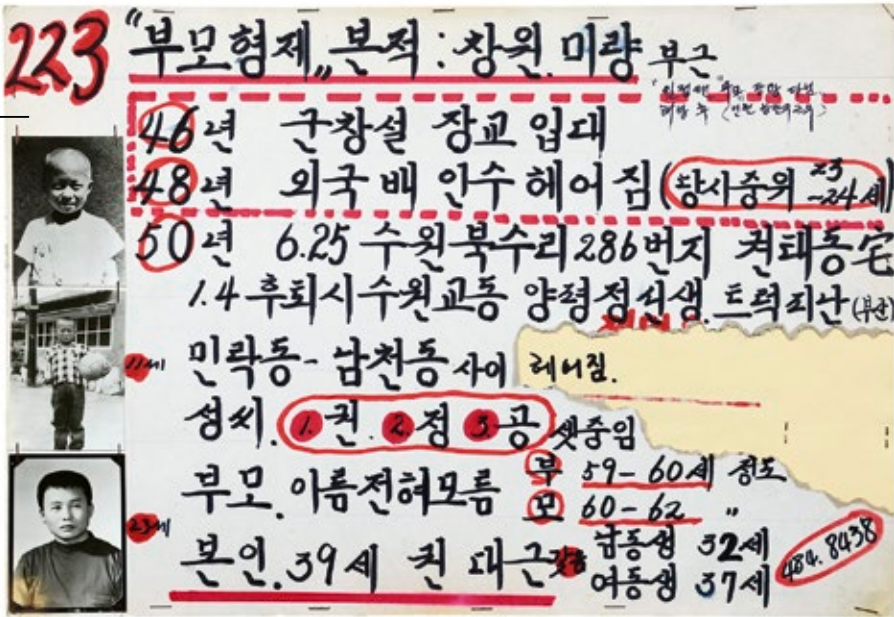 223
"부모형제" 본적 : 창원. 미량 부근
46년 군창설 장교 입대
48년 외국 배 인수 헤어 짐 (당시중위 23-24세)
50년 6.25 수원북수리 286번지 권태동宅
1.4 후퇴시 수원교동 양평정선생. 트럭피난 (부산)
11세
민락동 - 남천동 사이 헤어짐.
성씨. 1. 권. 2. 정 3. 공 셋중임
부모. 이름전혀모름
부 59-60세 정도
모 60-62 〃
23세
본인. 39세 권 대근
남동생 32세
여동생 37세
484.8438